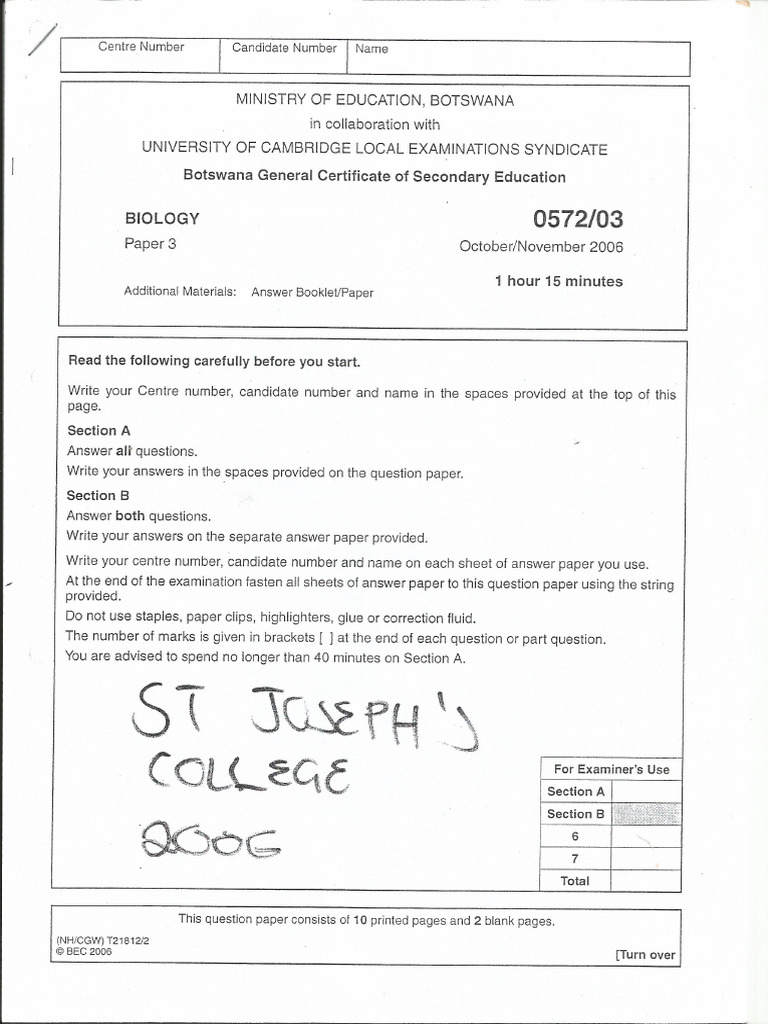 Centre Number Candidate Number Name
MINISTRY OF EDUCATION, BOTSWANA
in collaboration with
UNIVERSITY OF CAMBRIDGE LOCAL EXAMINATIONS SYNDICATE
Botswana General Certificate of Secondary Education
BIOLOGY 0572/03
Paper 3 October/November 2006
1 hour 15 minutes
Additional Materials: Answer Booklet/Paper
Read the following carefully before you start.
Write your Centre number, candidate number and name in the spaces provided at the top of this
page.
Section A
Answer all questions.
Write your answers in the spaces provided on the question paper.
Section B
Answer both questions.
Write your answers on the separate answer paper provided.
Write your centre number, candidate number and name on each sheet of answer paper you use.
At the end of the examination fasten all sheets of answer paper to this question paper using the string
provided.
Do not use staples, paper clips, highlighters, glue or correction fluid.
The number of marks is given in brackets [ ] at the end of each question or part question.
You are advised to spend no longer than 40 minutes on Section A.
ST JOSEPH'S
COLLEGE
2006
For Examiner's Use
Section A
Section B
6
7
Total
This question paper consists of 10 printed pages and 2 blank pages.
(NH/CGW) T21812/2
© BEC 2006
[Turn over